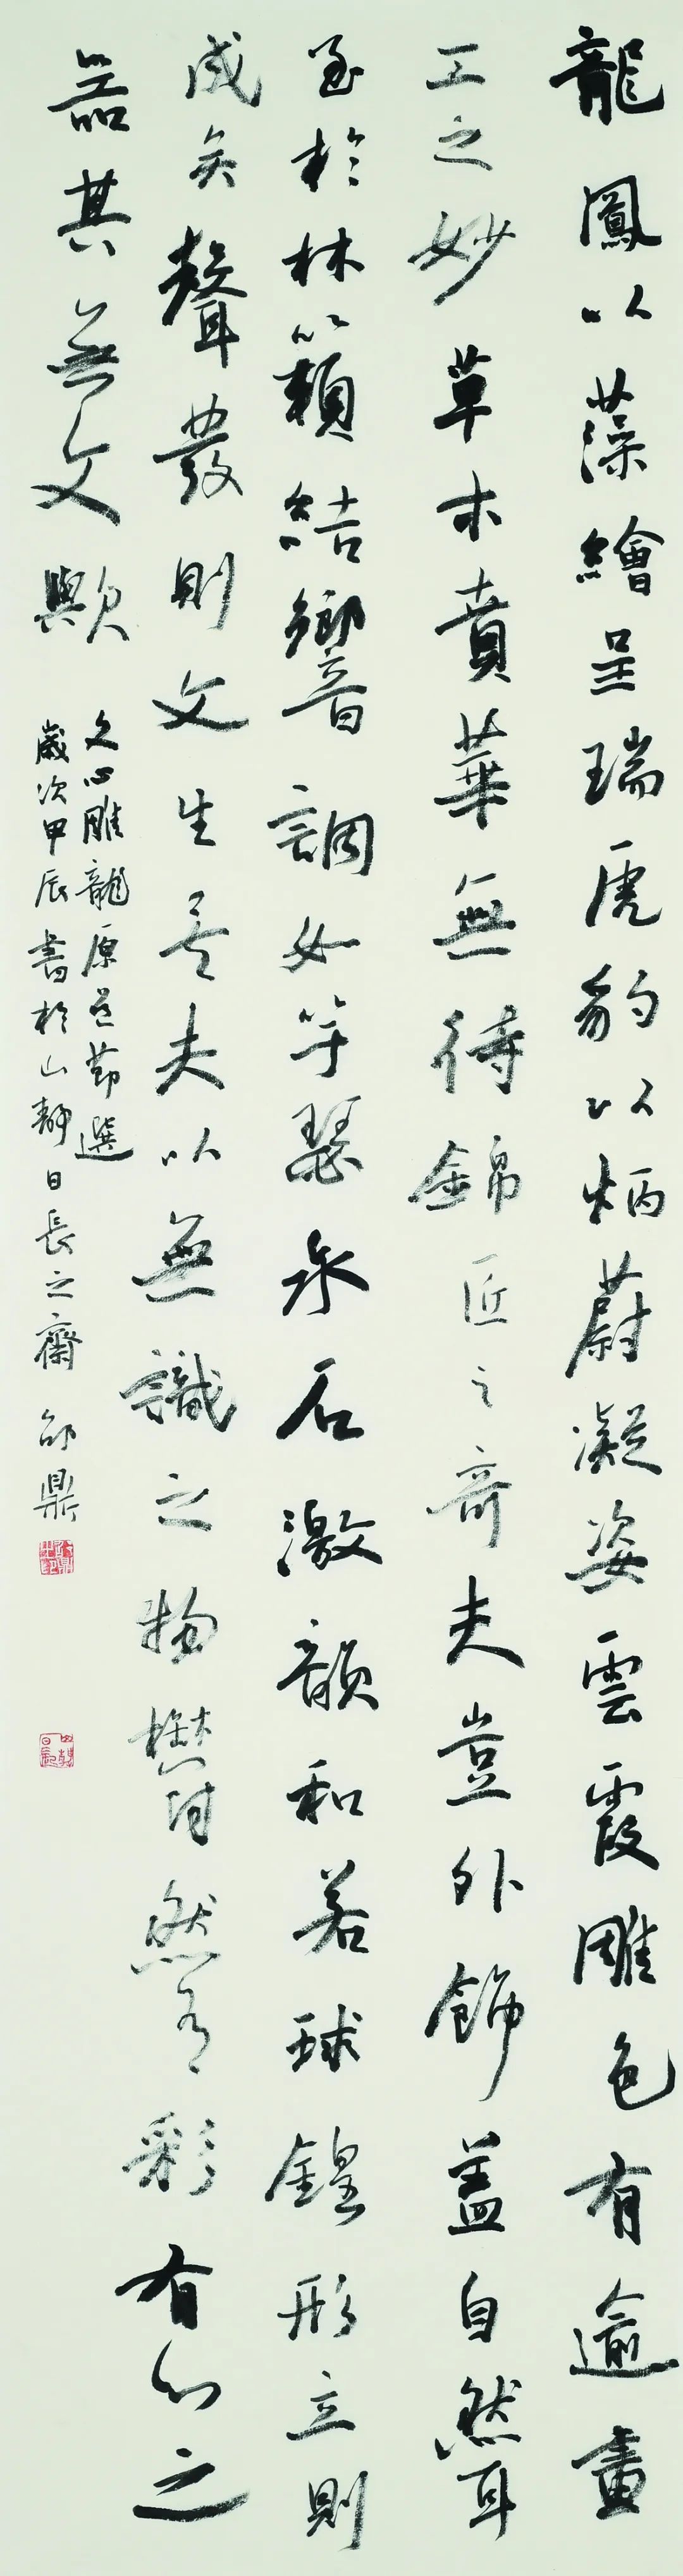 龍鳳以藻繪呈瑞虎豹以炳蔚凝姿雲霞雕色有逾畫
工之妙草木賁華無待錦匠之奇夫豈外飾蓋自然耳
至於林籟結響調如竽瑟泉石激韻和若球鍠形立則
成矣聲發則文生矣夫以無識之物鬱然有彩有心之
器其無文歟
文心雕龍原道節選
歲次甲辰書於山靜日長之齋 鼎